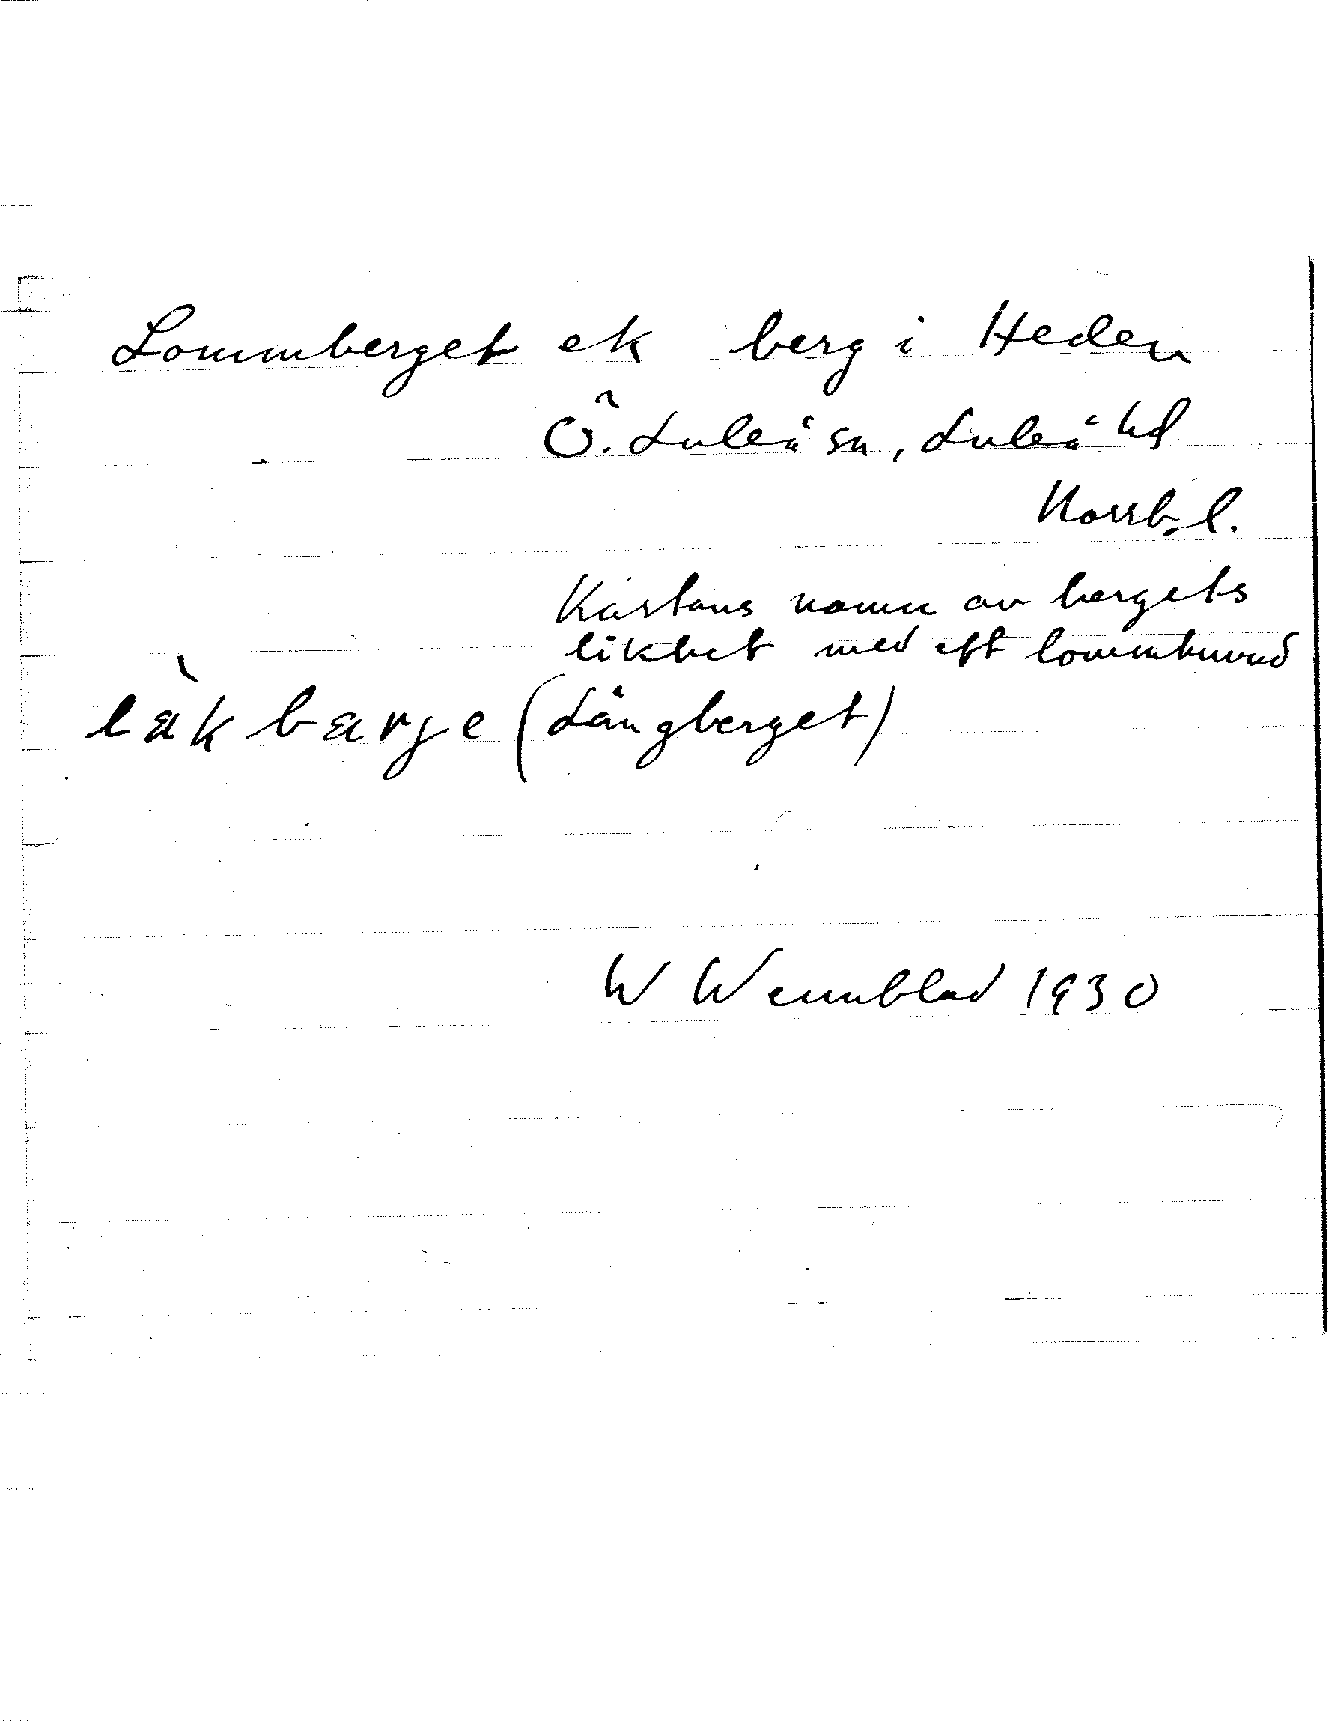 Lommberget ek berg i Heden
Ö. Luleå sn, Luleå hd
Norrb. l.
Kartans namn av bergets
likhet med ett lommhuvud
làkbarje (Långberget)
W Wennblad 1930